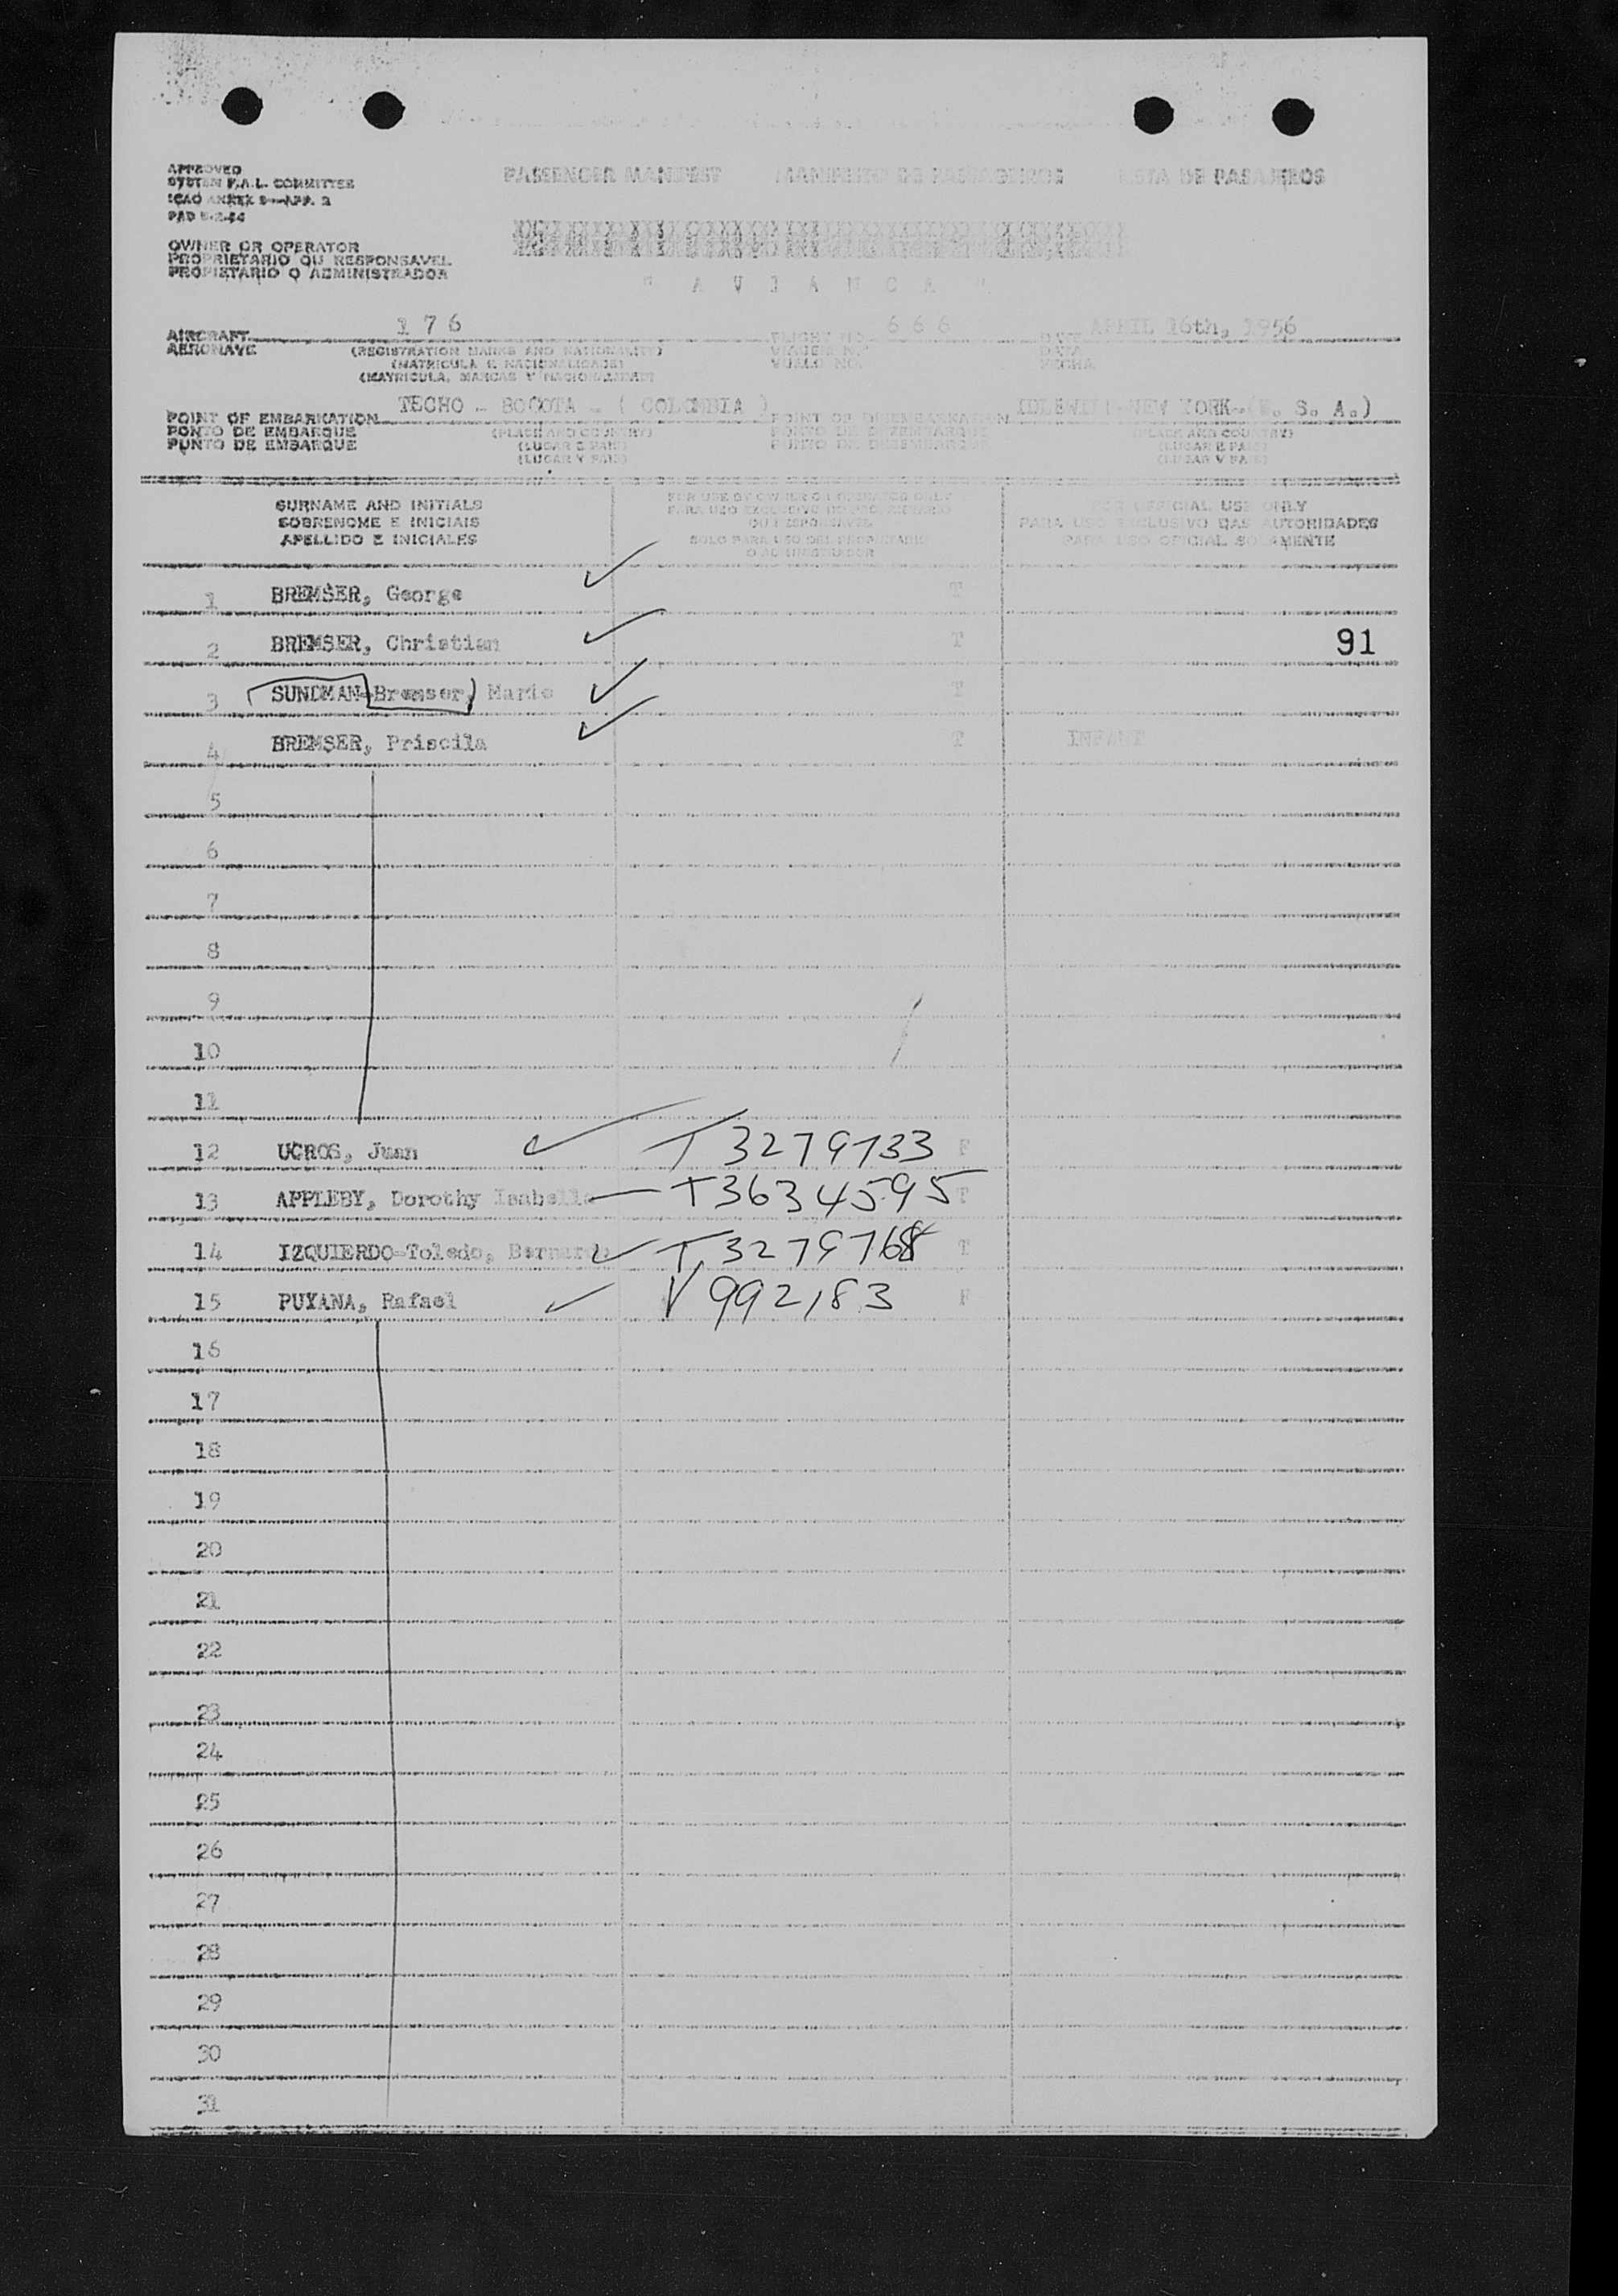 APPROVED
SYSTEM F.A.L. COMMITTEE
ICAO ANNEX 9—APP. 2
PAD
PASSENGER MANIFEST MANIFESTO DE PASSAGEIROS LISTA DE PASAJEROS
OWNER OR OPERATOR
PROPRIETARIO OU RESPONSAVEL
PROPIETARIO O ADMINISTRADOR
" A V I A N C A "
AIRCRAFT 1 7 6 FLIGHT NO. 6 6 6 DATE APRIL 16th, 1956
AERONAVE (REGISTRATION MARKS AND NATIONALITY) VIAGEM NO. DATA
(MATRICULA E NACIONALIDADE) VUELO NO. FECHA
(MATRICULA, MARCAS Y NACIONALIDAD)
POINT OF EMBARKATION TECHO - BOGOTA - ( COLOMBIA ) POINT OF DISEMBARKATION IDLEWILD-NEW YORK-(U. S. A.)
PONTO DE EMBARQUE (PLACE AND COUNTRY) PONTO DE DESEMBARQUE (PLACE AND COUNTRY)
PUNTO DE EMBARQUE (LUGAR E PAIS) PUNTO DE DESEMBARQUE (LUGAR E PAIS)
(LUGAR Y PAIS) (LUGAR Y PAIS)
SURNAME AND INITIALS FOR USE OF OWNER OR OPERATOR ONLY FOR OFFICIAL USE ONLY
SOBRENOME E INICIAIS PARA USO EXCLUSIVO DO PROPRIETARIO OU RESPONSAVEL PARA USO EXCLUSIVO DAS AUTORIDADES
APELLIDO E INICIALES SOLO PARA USO DEL PROPIETARIO O ADMINISTRADOR PARA USO OFICIAL SOLAMENTE
1 BREMSER, George T
2 BREMSER, Christian T 91
3 SUNDMAN-Bremser, Marie T
4 BREMSER, Priscila T INFANT
5
6
7
8
9
10
11
12 UCROS, Juan T 3279733 F
13 APPLEBY, Dorothy Isabella T3634595 T
14 IZQUIERDO-Toledo, Bernardo T 3279768 T
15 PUYANA, Rafael V 992183 F
16
17
18
19
20
21
22
23
24
25
26
27
28
29
30
31